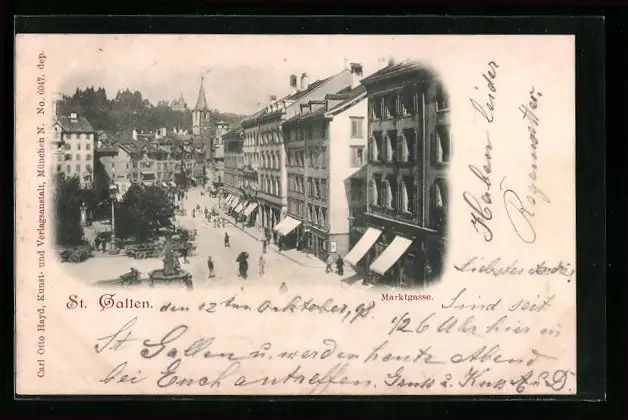 Carl Otto Hayd, Kunst- und Verlagsanstalt, München N. No. 6047, dep.
Haben leider
Regenwetter.
St. Gallen.
Marktgasse.
den 12ten Oktober, 98.
Liebster
Sind seit
1/2 6 Uhr hier in
St. Gallen u. werden heute Abend
bei Euch antreffen. Gruss u. Kuss A u D.